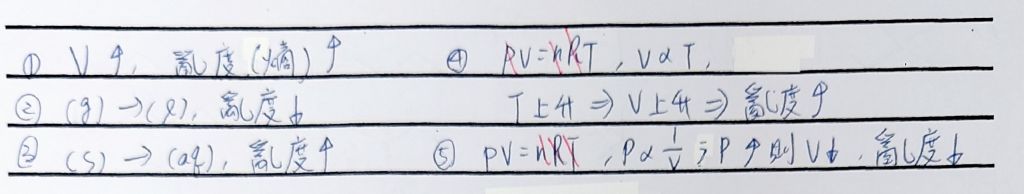 ① V↑, 亂度(熵)↑
② (g)→(l), 亂度↓
③ (s)→(aq), 亂度↑
④ PV=nRT, V∝T,
T上升⇒V上升⇒亂度↑
⑤ PV=nRT, P∝1/V; P↑則V↓, 亂度↓